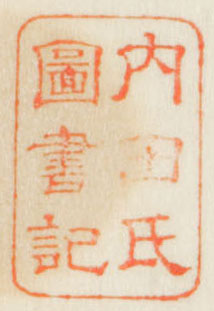 内田氏
圖書記